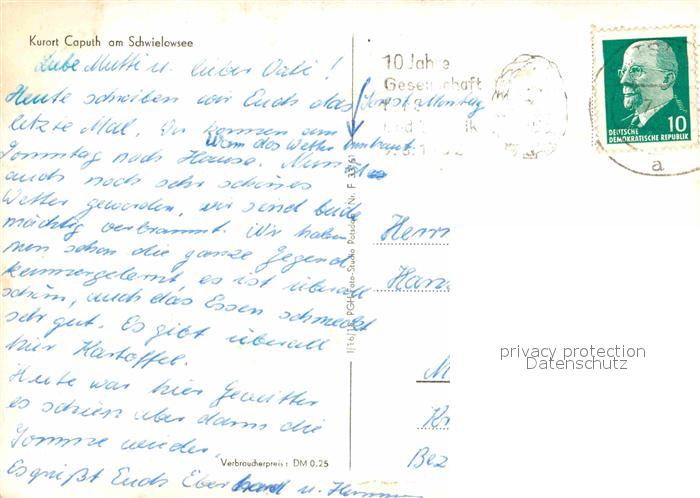 Kurort Caputh am Schwielowsee
Liebe Mutti u. lieber Vati!
Heute schreiben wir Euch das
letzte Mal. Wir kommen am
Sonntag nach Hause. Nun ist es
auch noch sehr schönes
Wetter geworden, wir sind beide
mächtig verbrannt. Wir haben
nun schon die ganze Gegend
kennengelernt, es ist überall
schön, auch das Essen schmeckt
sehr gut. Es gibt überall
hier Kartoffel.
Heute war hier Gewitter
es schien aber dann die
Sonne wieder.
Es grüßt Euch Eberhard u.
Sonst Montag
Wenn das Wetter
Verbraucherpreis: DM 0.25
PGH Foto-Studio Potsdam Nr. F
10 Jahre
Gesellschaft
DEUTSCHE
DEMOKRATISCHE REPUBLIK
10
a
Herrn
M
Kr
Bez
privacy protection
Datenschutz